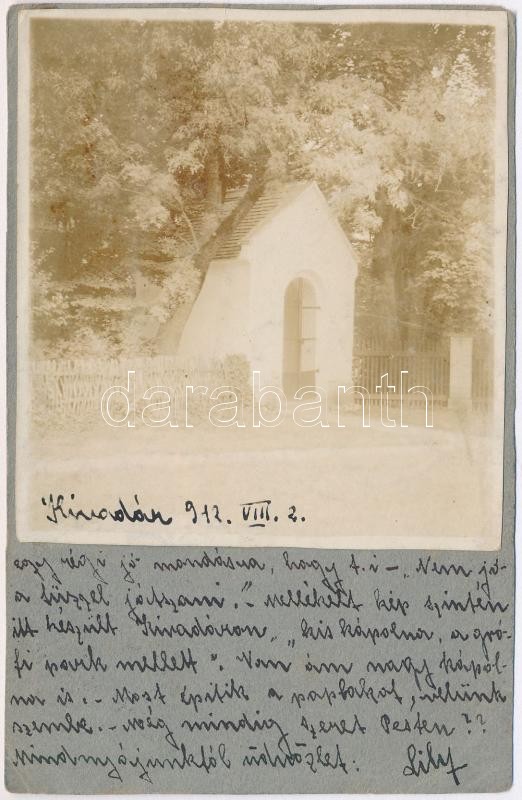 darabanth
Kivadár 912. VIII. 2.
egy régi jó mondásna, hogy t. i. - „Nem jó
a tűzzel játszani." - Mellékelt kép szintén
itt készült Kivadáron „kis kápolna, a gró-
fi park mellett". Van ám nagy kápol-
na is. - Most építik a paplakot, velünk
szembe. - Még mindig szeret Pesten??
Mindnyájunktól üdvözlet: Lily